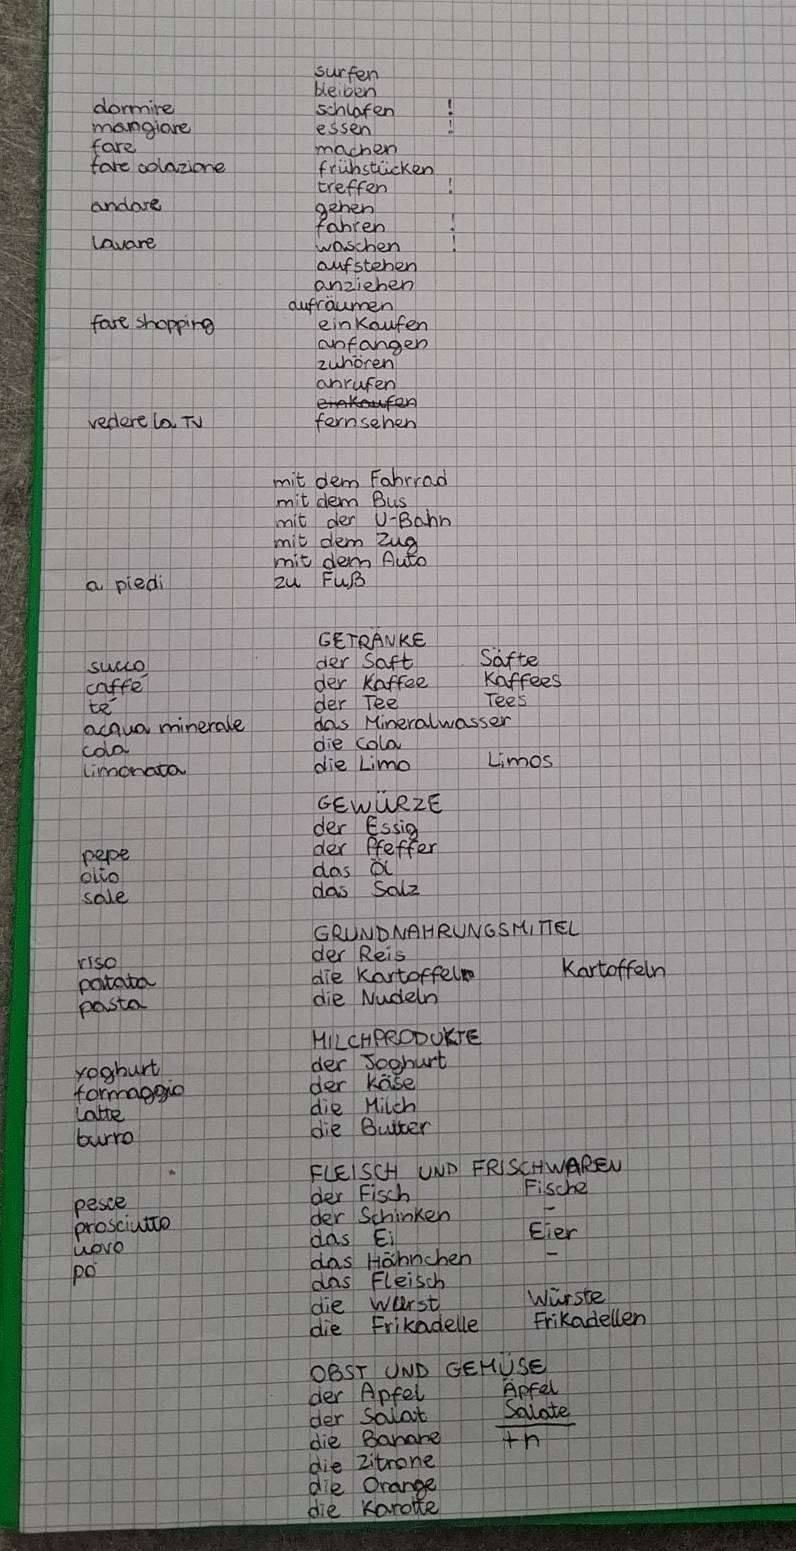 surfen
bleiben
dormire schlafen !
mangiare essen !
fare machen
fare colazione frühstücken
treffen !
andare gehen
fahren !
lavare waschen !
aufstehen
anziehen
aufräumen
fare shopping einkaufen
anfangen
zuhören
anrufen
einkaufen
vedere la TV fernsehen
mit dem Fahrrad
mit dem Bus
mit der U-Bahn
mit dem Zug
mit dem Auto
a piedi zu Fuß
GETRÄNKE
succo der Saft Säfte
caffè der Kaffee Kaffees
tè der Tee Tees
acqua minerale das Mineralwasser
cola die Cola
limonata die Limo Limos
GEWÜRZE
der Essig
pepe der Pfeffer
olio das Öl
sale das Salz
GRUNDNAHRUNGSMITTEL
riso der Reis
patata die Kartoffel Kartoffeln
pasta die Nudeln
MILCHPRODUKTE
yoghurt der Joghurt
formaggio der Käse
latte die Milch
burro die Butter
FLEISCH UND FRISCHWAREN
pesce der Fisch Fische
prosciutto der Schinken -
uovo das Ei Eier
po das Hähnchen -
das Fleisch
die Wurst Würste
die Frikadelle Frikadellen
OBST UND GEMÜSE
der Apfel Äpfel
der Salat Salate
die Banane +n
die Zitrone
die Orange
die Karotte